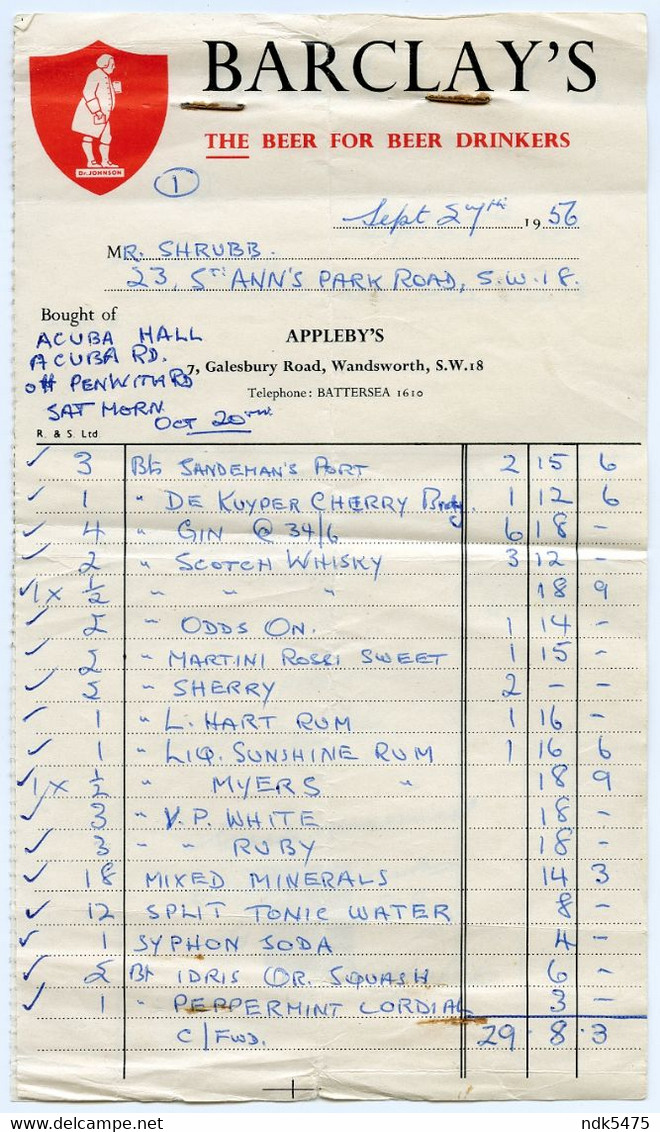 BARCLAY'S
THE BEER FOR BEER DRINKERS
Dr. JOHNSON
1
Sept 27th 1956
MR. SHRUBB.
23, ST. ANN'S PARK ROAD, S.W.18.
Bought of
ACUBA HALL
ACUBA RD.
off PENWITH RD
SAT MORN
OCT 20TH.
APPLEBY'S
7, Galesbury Road, Wandsworth, S.W.18
Telephone: BATTERSEA 1610
R. & S. Ltd
✓ 3 Bts SANDEMAN'S PORT 2 15 6
✓ 1 " DE KUYPER CHERRY Brdy. 1 12 6
✓ 4 " GIN @ 34/6 6 18 -
✓ 2 " SCOTCH WHISKY 3 12 -
✓ 1 x ½ " " " 18 9
✓ 2 " ODDS ON. 1 14 -
✓ 2 " MARTINI ROSSI SWEET 1 15 -
✓ 2 " SHERRY 2 - -
✓ 1 " L. HART RUM 1 16 -
✓ 1 " LIQ. SUNSHINE RUM 1 16 6
✓ 1 x ½ " MYERS " 18 9
✓ 3 " V.P. WHITE 18 -
✓ 3 " " RUBY 18 -
✓ 18 MIXED MINERALS 14 3
✓ 12 SPLIT TONIC WATER 8 -
✓ 1 SYPHON SODA 4 -
✓ 2 Bt IDRIS OR. SQUASH 6 -
✓ 1 " PEPPERMINT CORDIAL 3 -
C/FWD. 29 . 8 . 3
ndk5475